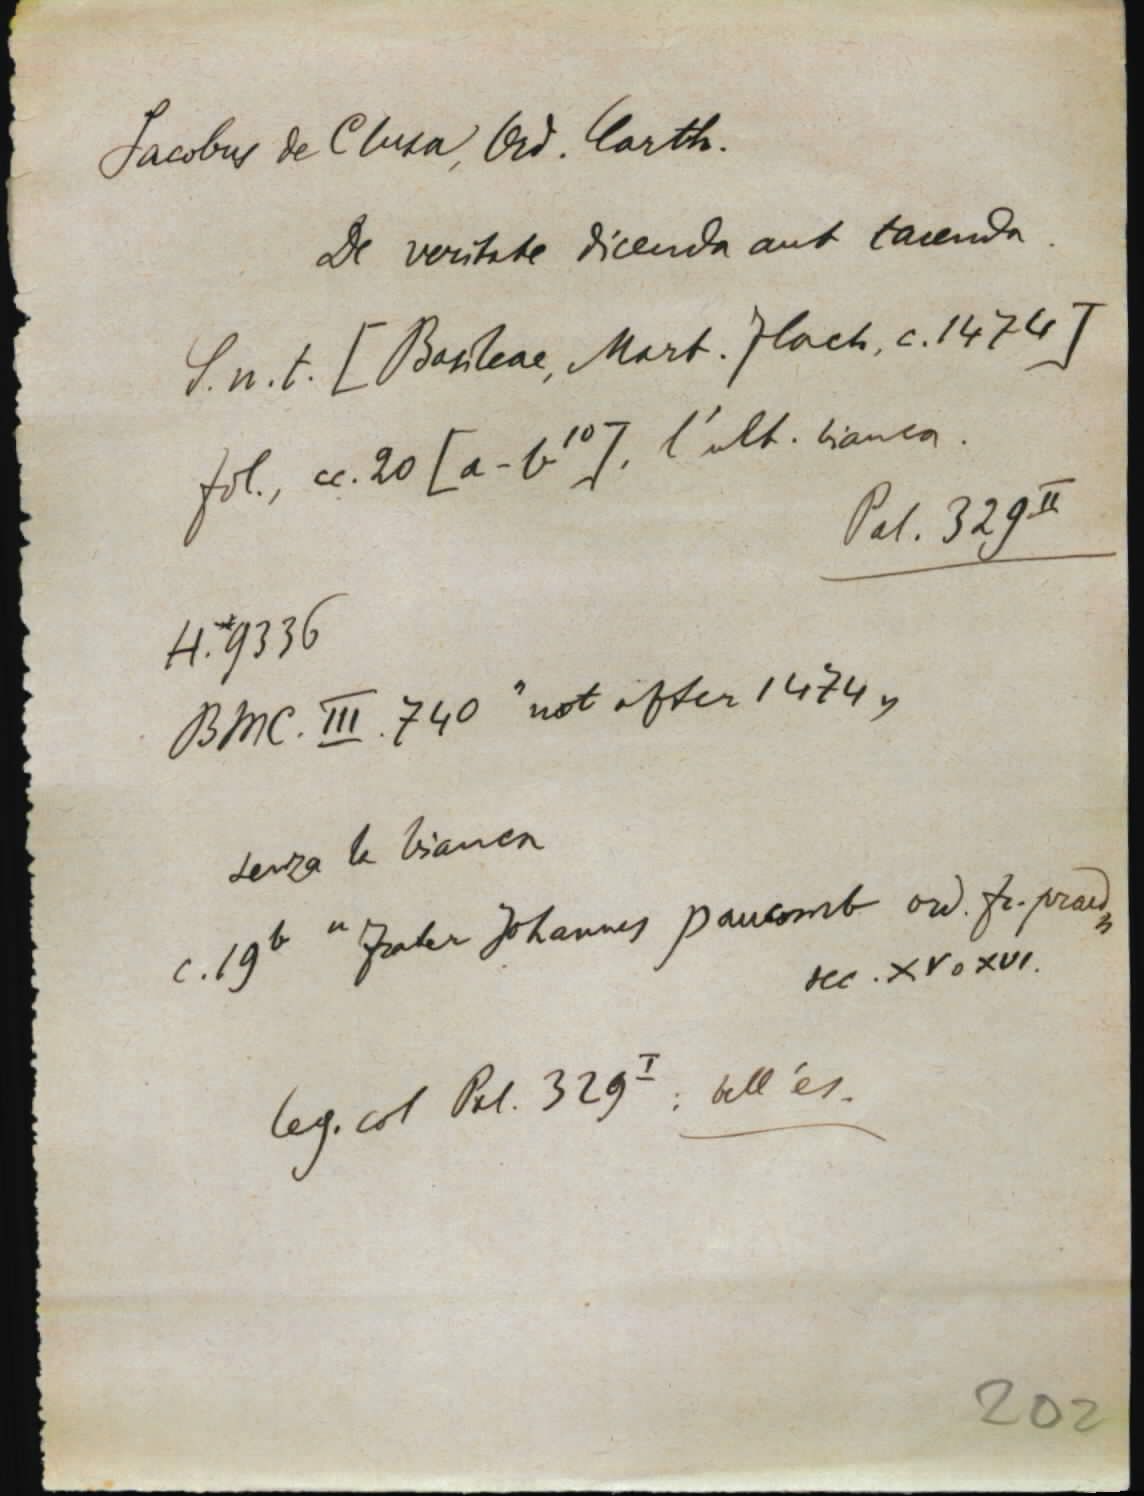 Jacobus de Clusa, Ord. Carth.
De veritate dicenda aut tacenda.
S.n.t. [Basileae, Mart. Flach, c.1474]
fol., cc.20 [a-b¹⁰], l'ult. bianca.
Pal. 329ᴵᴵ
H.*9336
BMC. III. 740 "not after 1474"
senza la bianca
c.19ᵇ "Frater Johannes ord. fr. praed"
sec. XV o XVI.
leg. col Pal. 329ᴵ; bell'es.
202